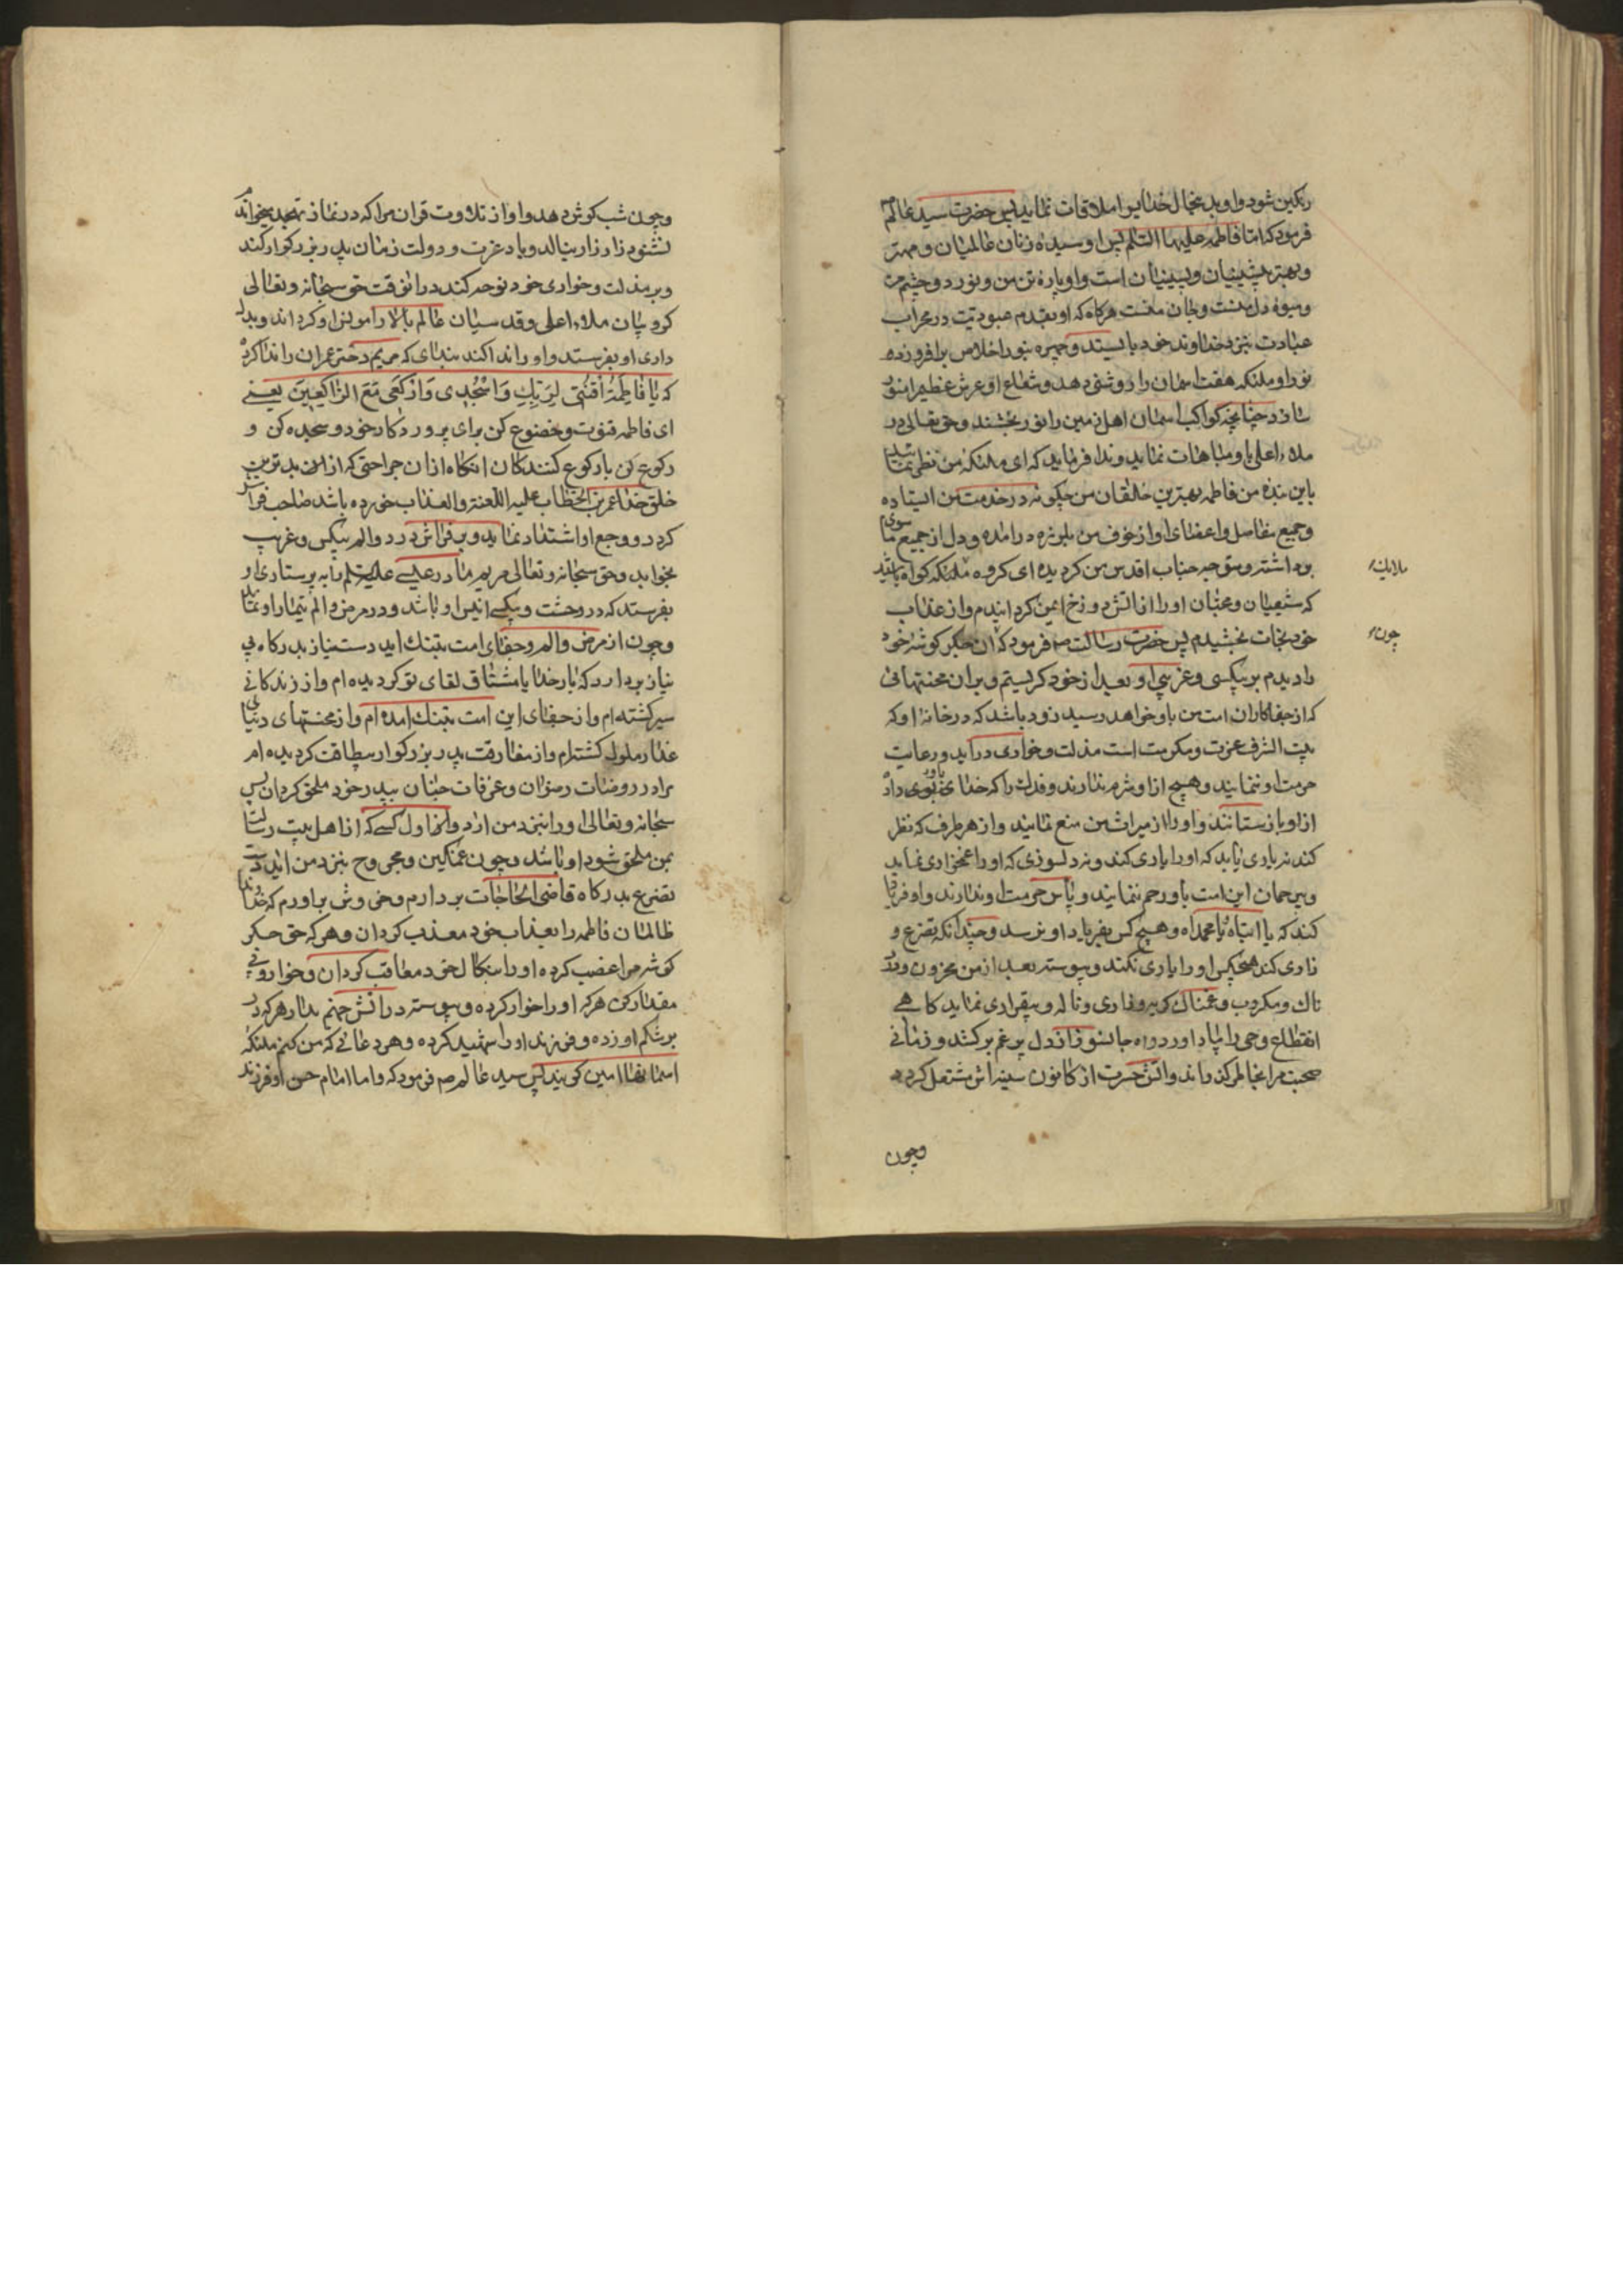 رنکین شود و او بدینحال خدایرا ملاقات نماید پس حضرت سید عالم
فرمود که اما فاطمه علیها السلام پس او سیده زنان عالمیان و مهتر
و بهتر پیشینیان و پسینیان است و او پاره تن من و نور دو چشم من
و میوه دل منست و جان منست هرکاه که او بقدم عبودیت در محراب
عبادت بنزد خداوند خود بایستد و چهره بنور اخلاص برافروزد
نور او ملئکه هفت اسمان را روشنی دهد و شعاع او عرش عظیم را منور
سازد چنانچه کواکب اسمان اهل زمین را نور بخشند و حق تعالی در
ملاء اعلی باو مباهات نماید و ندا فرماید که ای ملئکه من نظر نمائید
باین بنده من فاطمه بهترین خالقان من چکونه در خدمت من ایستاده
و جمیع مفاصل و اعضای او از خوف من بلرزه درامده و دل از جمیع ما سوی
برداشته و متوجه جناب اقدس من کردیده ای کروه ملئکه کواه باشید
ملایکه
که شیعیان و محبان او را از اتش دوزخ ایمن کردانیدم و از عذاب
خود نجات بخشیدم پس حضرت رسالت ص فرمود که ان جکر کوشه خود
چون
را دیدم بر بیکسی و غریبی او بعد از خود کریستم و بران محنتهائی
که از جفاکاران امت من باو خواهد رسید زود باشد که در خانه او که
بیت الشرف عزت و مکرمت است مذلت و خواری دراید و رعایت
حرمت او ننمایند و هیچ از او شرم ندارند و فدک را که خدای باو داد
از او بازستانند و او را از میراث من منع نمایند و از هر طرف که نظر
کند نه یاری یابد که او را یاری کند و نه دلسوزی که او را غمخواری نماید
و بیرحمان این امت باو رحم ننمایند و پاس حرمت او ندارند و او فریاد
کند که یا ابتاه یا محمداه و هیچ کس بفریاد او نرسد و چندانکه تضرع و
زاری کند هیچکس او را یاری نکند و پیوسته بعد از من محزون و درد
ناک و مکروب و غمناک کریه و زاری و ناله و بیقراری نماید کاهی
انقطاع وحی را یاد اورد و اه جانسوز از دل پر غم برکشد و زمانی
صحبت مرا بخاطر کذراند و اتش حسرت از کانون سینه اش مشتعل کردد
وچون
وچون شب کوش دهد و اواز تلاوت قران مرا که در نماز تهجد میخواندم
نشنود زار زار بنالد و یاد عزت و دولت زمان پدر بزرکوار کند
و بر مذلت و خواری خود نوحه کند در انوقت حق سبحانه و تعالی
کروبیان ملاء اعلی و قدسیان عالم بالا را مونس او کرداند و بدل
داری او بفرستد و او را ندا کنند بندای که مریم دختر عمران را ندا کرد
که یا فاطمة اقنتی لربک واسجدی وارکعی مع الراکعین یعنی
ای فاطمه قنوت و خضوع کن برای پروردکار خود و سجده کن و
رکوع کن با رکوع کنندکان انکاه ازان جراحتی که از ان بدترین
خلق خدا عمر بن الخطاب علیه اللعنة والعذاب خورده باشد صاحب فراش
کردد و وجع او اشتداد نماید و بر فراش درد و الم بیکس و غریب
بخوابد و حق سبحانه و تعالی مریم مادر عیسی علیه السلم را به پرستاری او
بفرستد که در وحشت و بیکسی انیس او باشد و در مرض و الم تیمار او نماید
و چون از مرض و الم و جفای امت بتنک اید دست نیاز بدرکاه بی
نیاز بردارد که بارخدایا مشتاق لقای تو کردیده ام و از زندکانی
سیر کشته ام و از جفای این امت بتنک امده ام و از محنتهای دنیای
غدار ملول کشته ام و از مفارقت پدر بزرکوار بیطاقت کردیده ام
مرا در روضات رضوان و غرفات جنان بپدر خود ملحق کردان پس
سبحانه و تعالی او را بنزد من ارد و اول کسی که از اهل بیت رسالت
بمن ملحق شود او باشد و چون غمکین و مجروح بنزد من اید دست
تضرع بدرکاه قاضی الحاجات بردارم و خروش براورم که خداوندا
ظالمان فاطمه را بعذاب خود معذب کردان و هر که حق جکر
کوشه مرا غضب کرده او را بنکال خود معاقب کردان و خوار و بی
مقدار کن هر که او را خوار کرده و پیوسته در اتش جهنم بدار هر که در
بر شکم او زده و فرزند او را شهید کرده و هر دعائی که من کنم ملئکه
اسمانها امین کویند پس سید عالم ص فرمود که و اما امام حسن او فرزند